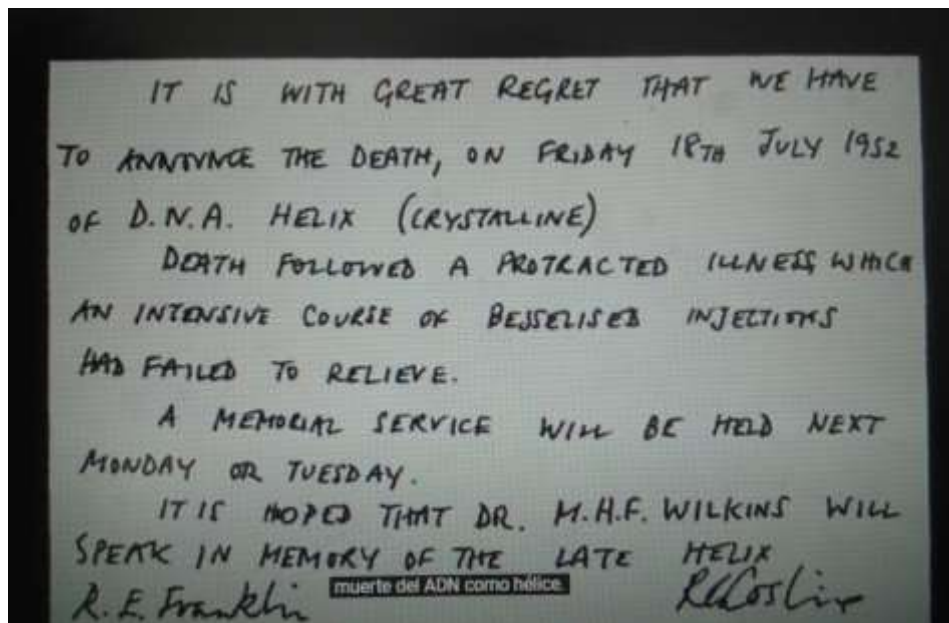 IT IS WITH GREAT REGRET THAT WE HAVE
TO ANNOUNCE THE DEATH, ON FRIDAY 18TH JULY 1952
OF D.N.A. HELIX (CRYSTALLINE)
DEATH FOLLOWED A PROTRACTED ILLNESS WHICH
AN INTENSIVE COURSE OF BESSELISED INJECTIONS
HAD FAILED TO RELIEVE.
A MEMORIAL SERVICE WILL BE HELD NEXT
MONDAY OR TUESDAY.
IT IS HOPED THAT DR. M.H.F. WILKINS WILL
SPEAK IN MEMORY OF THE LATE HELIX
muerte del ADN como hélice.
R. E. Franklin R.G. Gosling